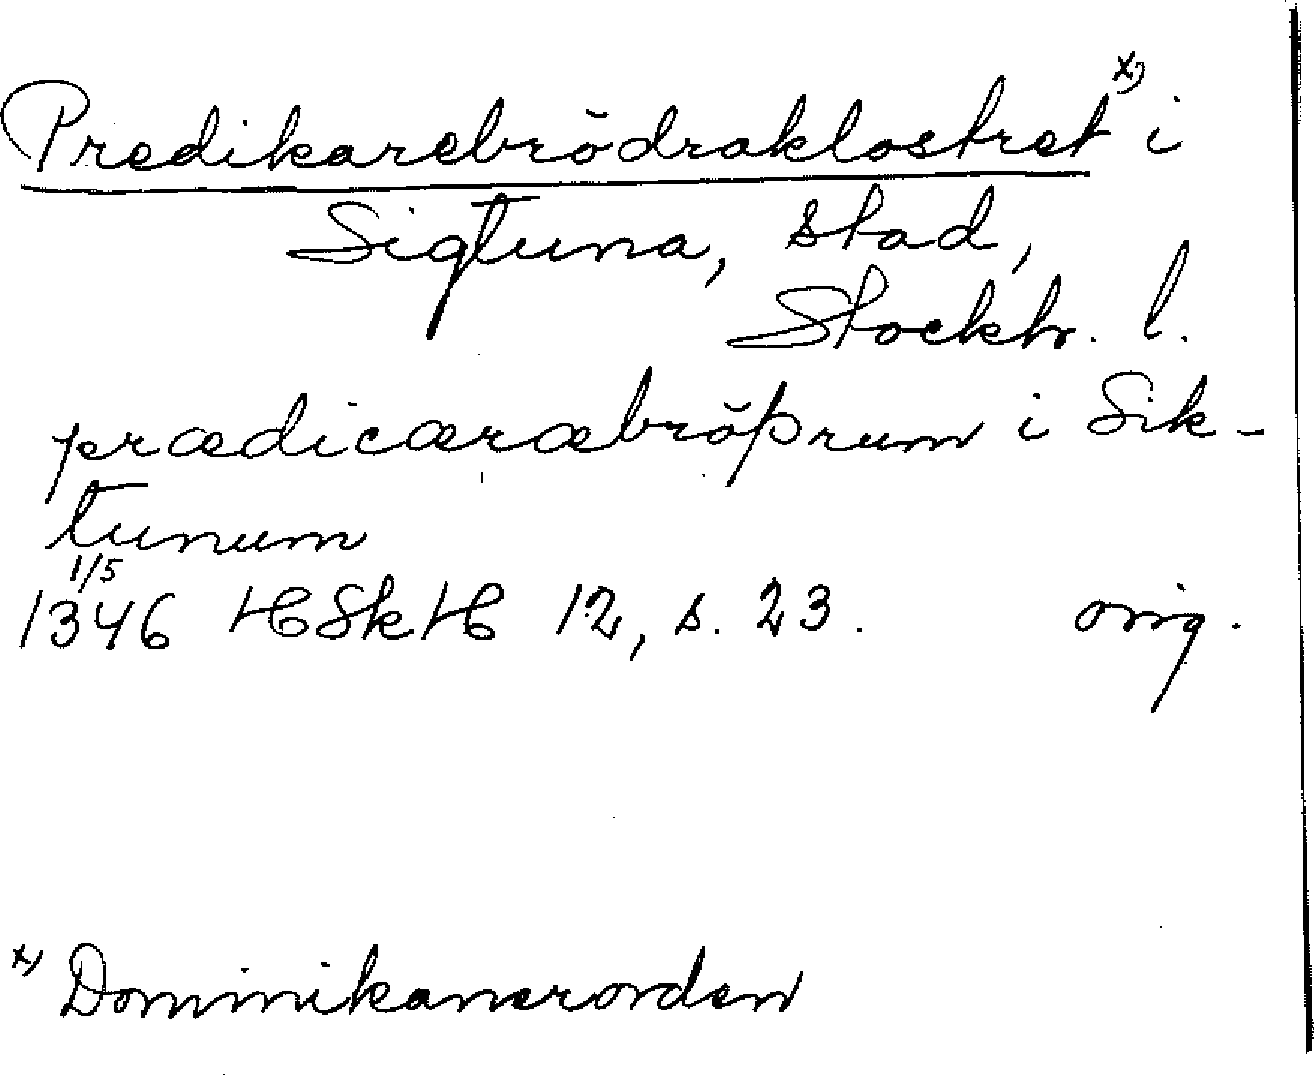 Predikarebrödraklostret x) i
Sigtuna, stad,
Stockh. l.
prædicæræbröþrum i Sik-
tunum
1/5
1346 HSkH 12, s. 23. orig.
x) Dominikanerorden